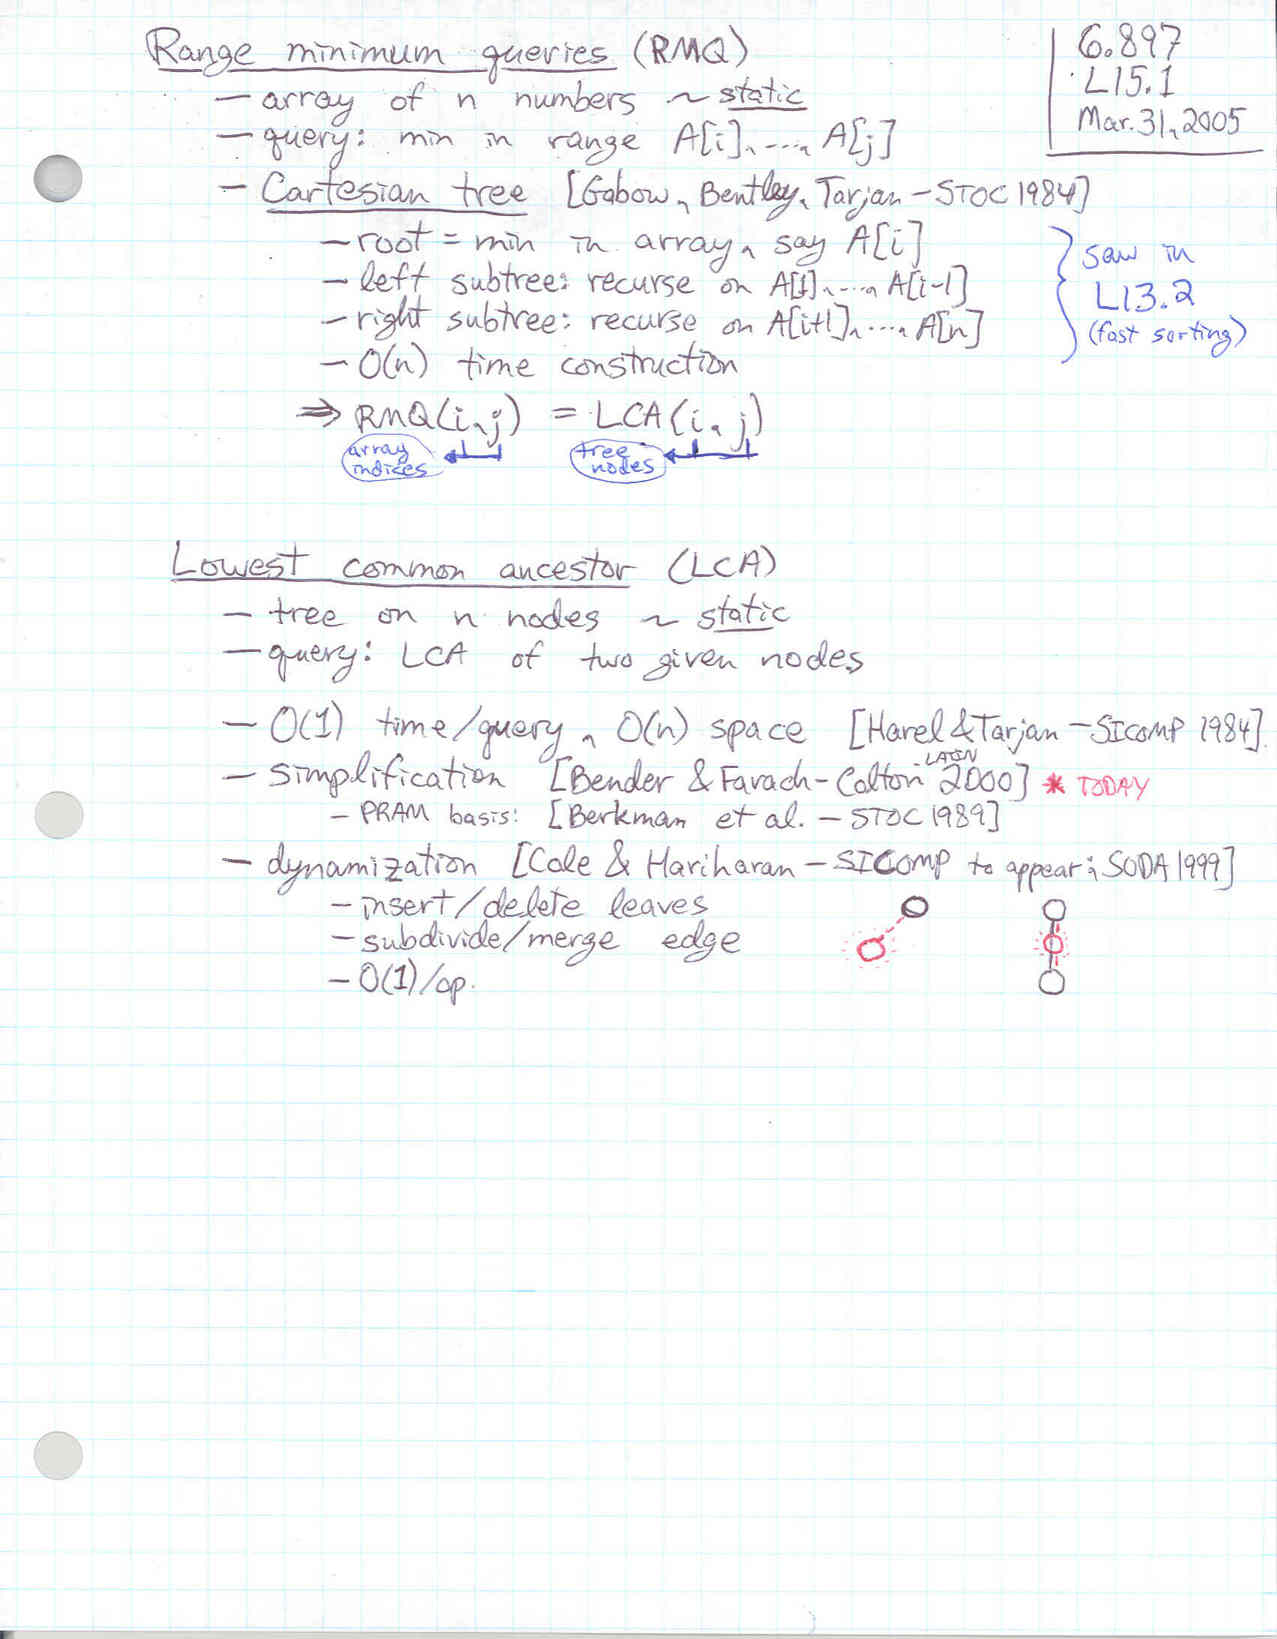 Range minimum queries (RMQ)
6.897
L15.1
Mar. 31, 2005
— array of n numbers ~ static
— query: min in range A[i], ..., A[j]
— Cartesian tree [Gabow, Bentley, Tarjan - STOC 1984]
— root = min in array, say A[i]
— left subtree: recurse on A[1], ..., A[i-1]
— right subtree: recurse on A[i+1], ..., A[n]
— O(n) time construction
saw in
L13.2
(fast sorting)
⇒ RMQ(i, j) = LCA(i, j)
array indices
tree nodes
Lowest common ancestor (LCA)
— tree on n nodes ~ static
— query: LCA of two given nodes
— O(1) time/query, O(n) space [Harel & Tarjan - SICOMP 1984]
— simplification [Bender & Farach-Colton LATIN 2000] * TODAY
— PRAM basis: [Berkman et al. - STOC 1989]
— dynamization [Cole & Hariharan - SICOMP to appear; SODA 1999]
— insert/delete leaves
— subdivide/merge edge
— O(1)/op.